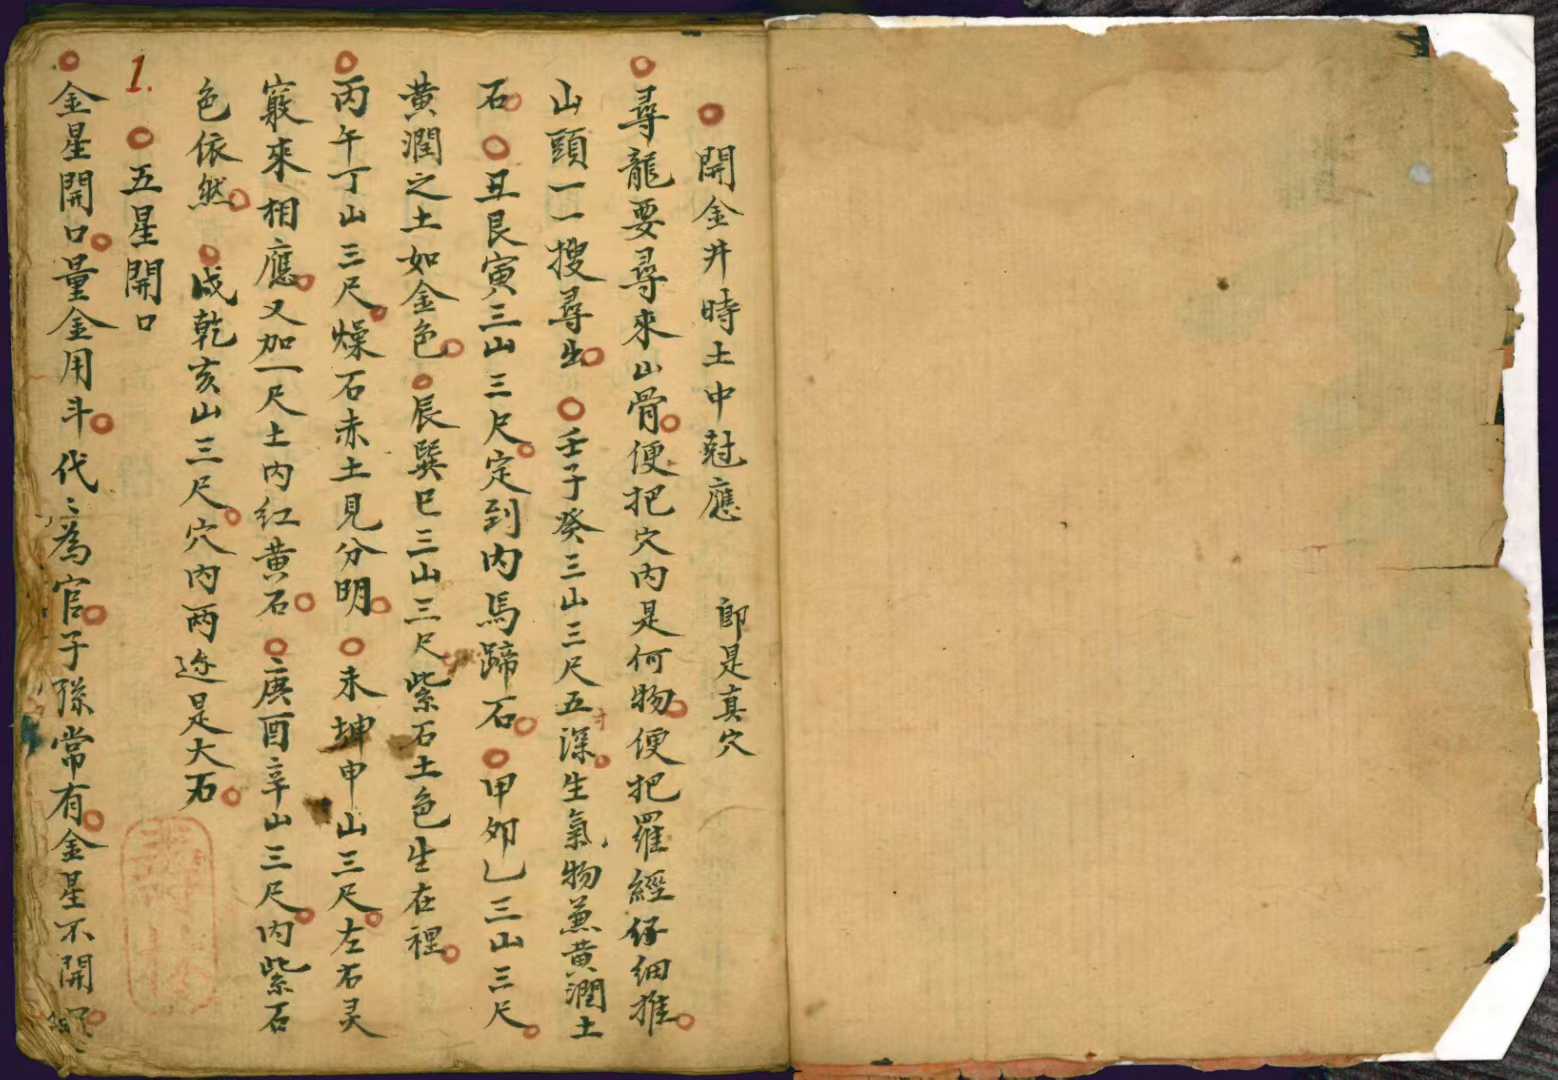 開金井時土中尅應　即是真穴
尋龍要尋來山骨便把穴內是何物便把羅經仔細推
山頭一一搜尋出壬子癸三山三尺五寸深生氣物兼黃潤土
石丑艮寅三山三尺定到內馬蹄石甲卯乙三山三尺
黃潤之土如金色辰巽巳三山三尺紫石土色生在裡
丙午丁山三尺燥石赤土見分明未坤申山三尺左右灵
竅來相應又加一尺土內紅黃石庚酉辛山三尺內紫石
色依然戌乾亥山三尺穴內兩边是大石
1.
五星開口
金星開口量金用斗代〻為官子孫常有金星不開